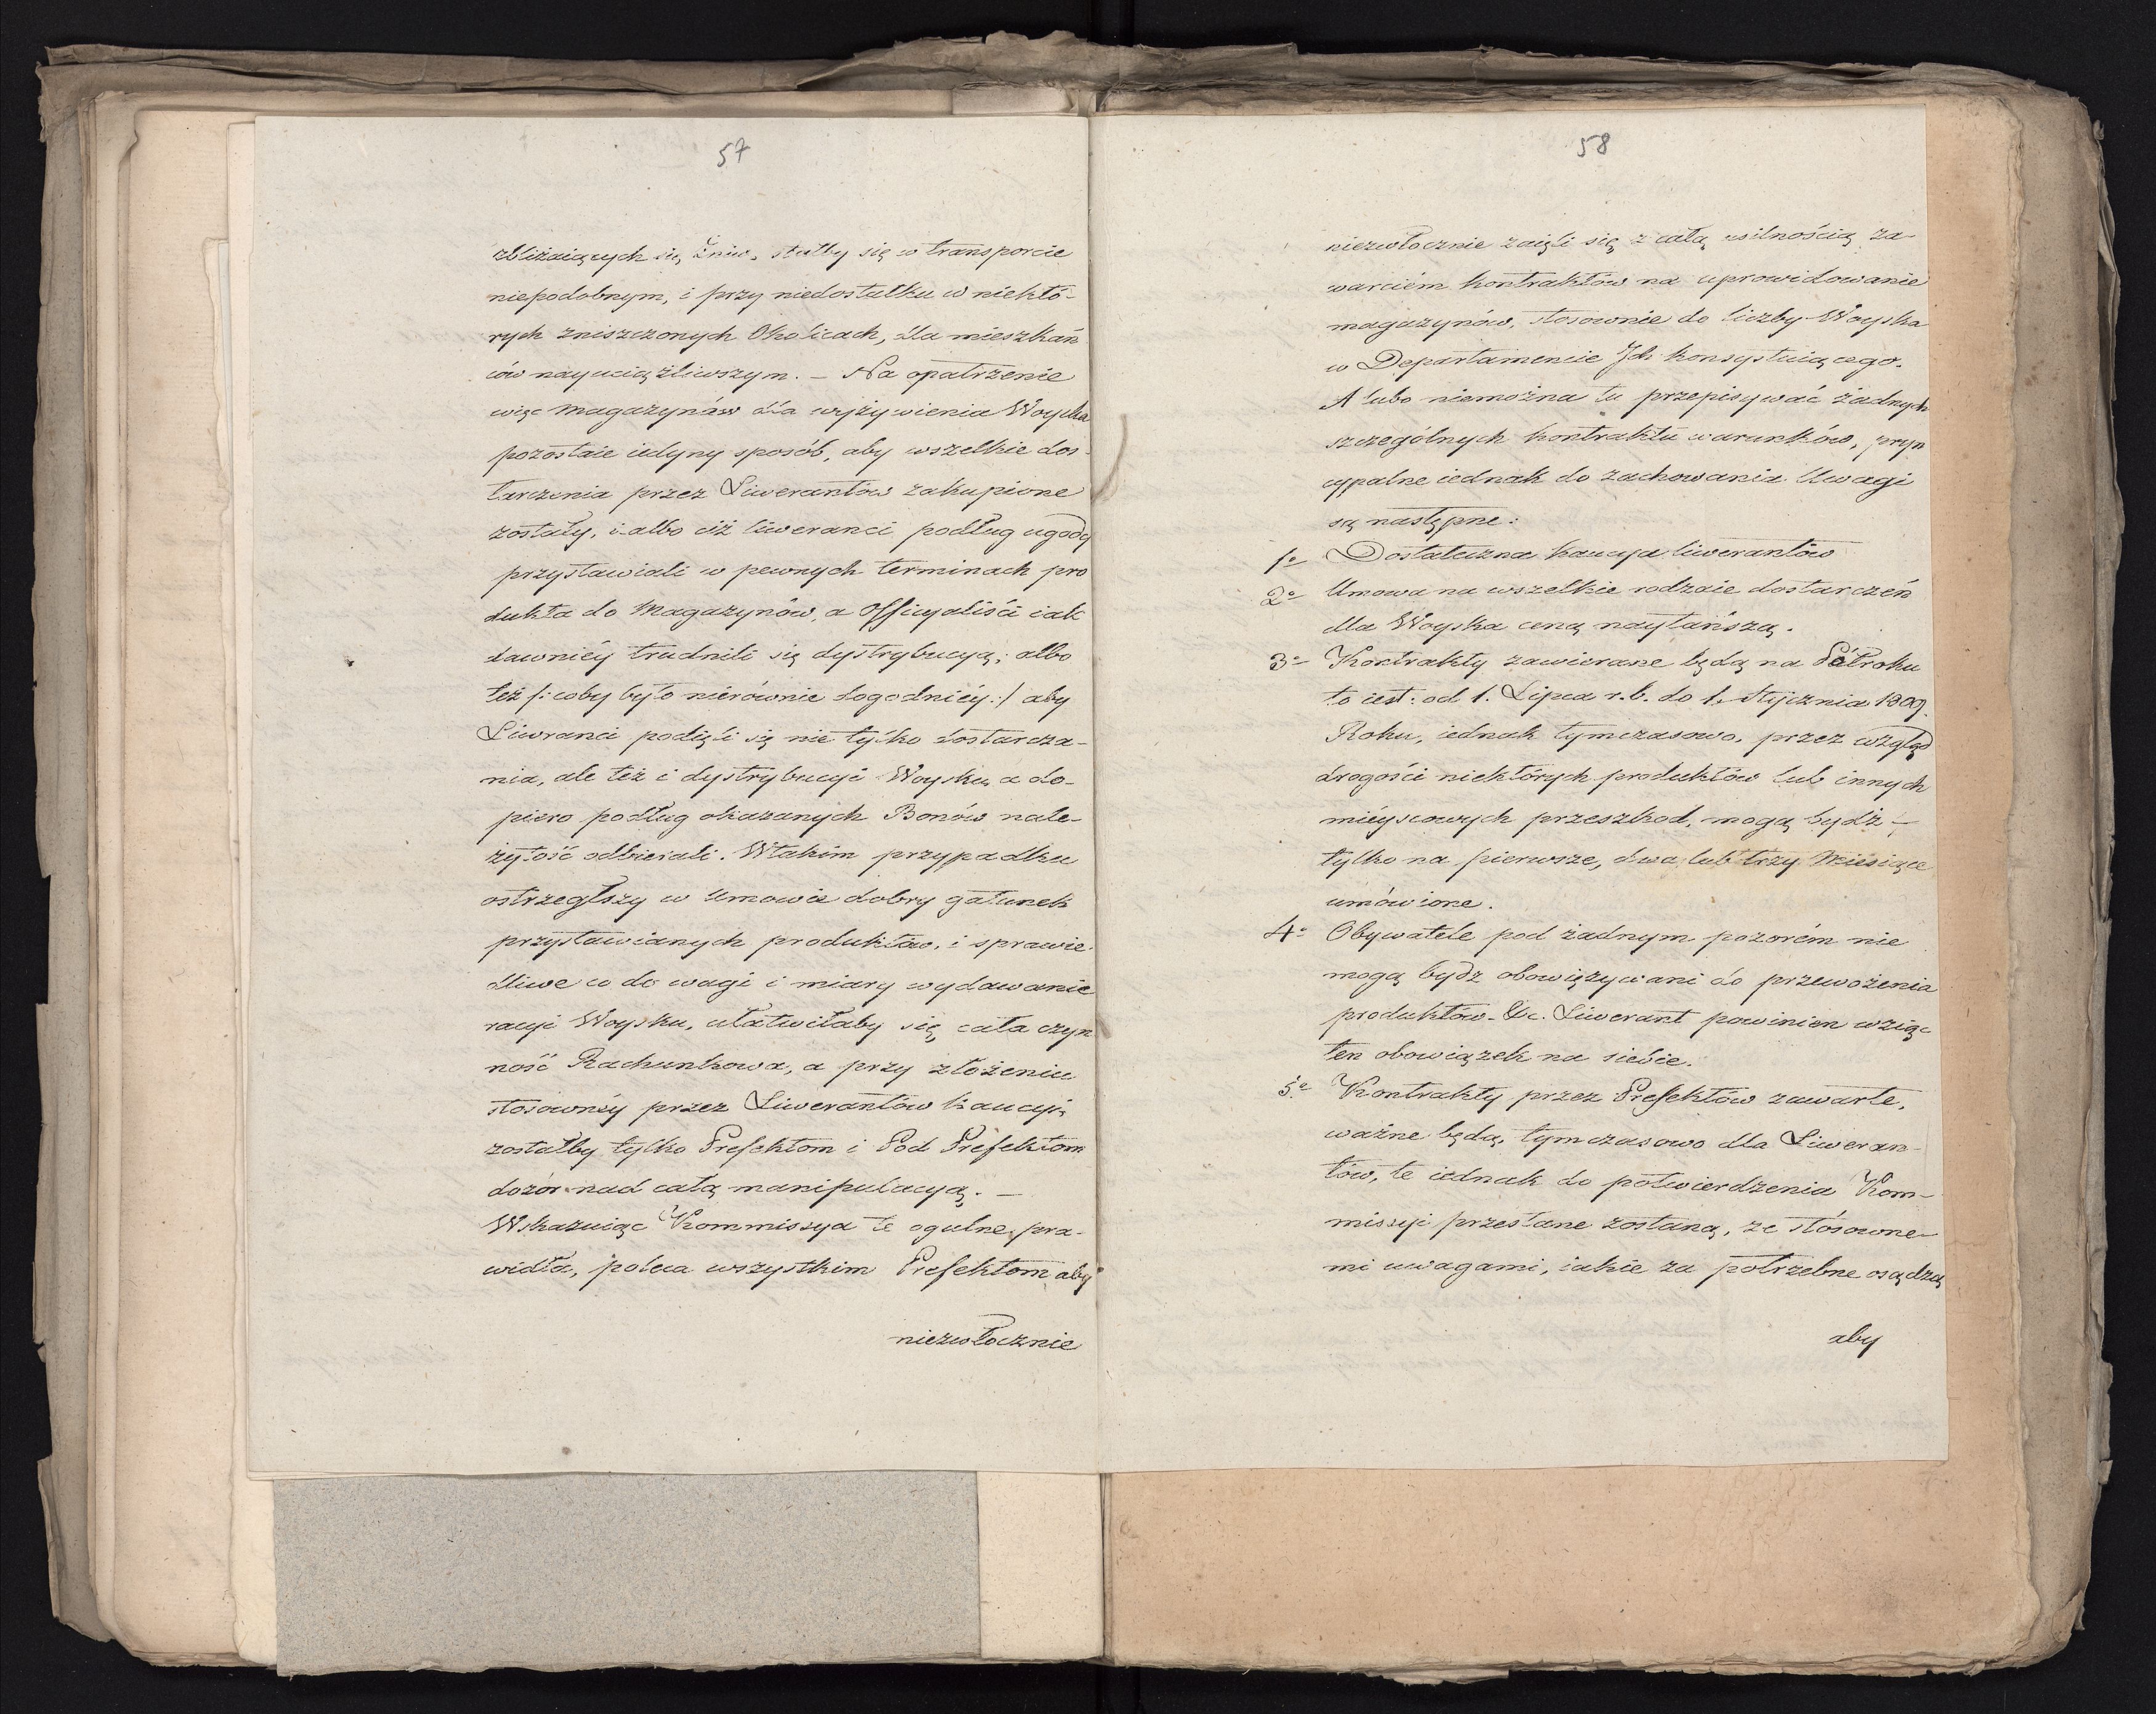 57
zbliżaiących się Żniw, stałby się w transporcie
niepodobnym, i przy niedostatku w niektó-
rych zniszczonych Okolicach, dla mieszkań
ców nayuciążliwszym. — Na opatrzenie
więc Magazynów dla wyżywienia Woyska
pozostaie iedyny sposób, aby wszelkie dos-
tarczenia przez Liwerantów zakupione
zostały, i albo ciż liweranci podług ugody
przystawiali w pewnych terminach pro
dukta do Magazynów, a Officyaliści iak
dawniéy trudnili się dystrybucyą; albo
też /: coby było nierównie dogodniéy :/ aby
Liwranci podięli się nie tylko dostarcza-
nia, ale też i dystrybucyi Woysku, a do-
piero podług okazanych Bonów nale-
żytość odbierali. Wtakim przypadku
ostrzegłszy w Umowie dobry gatunek
przystawianych produktów, i sprawie-
dliwe co do wagi i miary wydawanie
racyi Woysku, ułatwiłaby się cała czyn
ność Rachunkowa, a przy złożeniu
stosownéy przez Liwerantów kaucyi,
zostałby tylko Prefektom i Pod Prefektom
dozór nad całą manipulacyą. —
Wskazuiąc Kommissya te ogulne pra-
widła, poleca wszystkim Prefektom aby
niezwłocznie
58
niezwłocznie zaięli się z całą usilnością za-
warciém kontraktów na uprowidowanie
magazynów, stosownie do liczby Woyska
w Departamencie Jch konsystuiącego.
A lubo niemożna tu przepisywać żadnych
szczególnych kontraktu warunków, pryn
cypalne iednak do zachowania Uwagi
są następne:
1o Dostateczna kaucya liwerantów
2o Umowa na wszelkie rodzaie dostarczeń
dla Woyska ceną naytańszą.
3o Kontrakty zawierane będą na Półroku
to iest: od 1. Lipca r. b. do 1. Stycznia 1809.
Roku, iednak tymczasowo, przez wzgląd
drogości niektórych produktów lub innych
miéyscowych przeszkod, mogą bydź —
tylko na pierwsze, dwa, lub trzy Miesiące
umówione.
4o Obywatele pod żadnym pozorém nie
mogą bydz obowiązywani do przewożenia
produktów. &c. Liwerant powinien wziąc
ten obowiązek na siebie.
5o Kontrakty przez Prefektów zawarte,
ważne będą, tymczasowo dla Liweran-
tów, te iednak do potwierdzenia Kom-
missyi przesłane zostaną, ze stósowne-
mi uwagami, iakie za potrzebne osądzą
aby